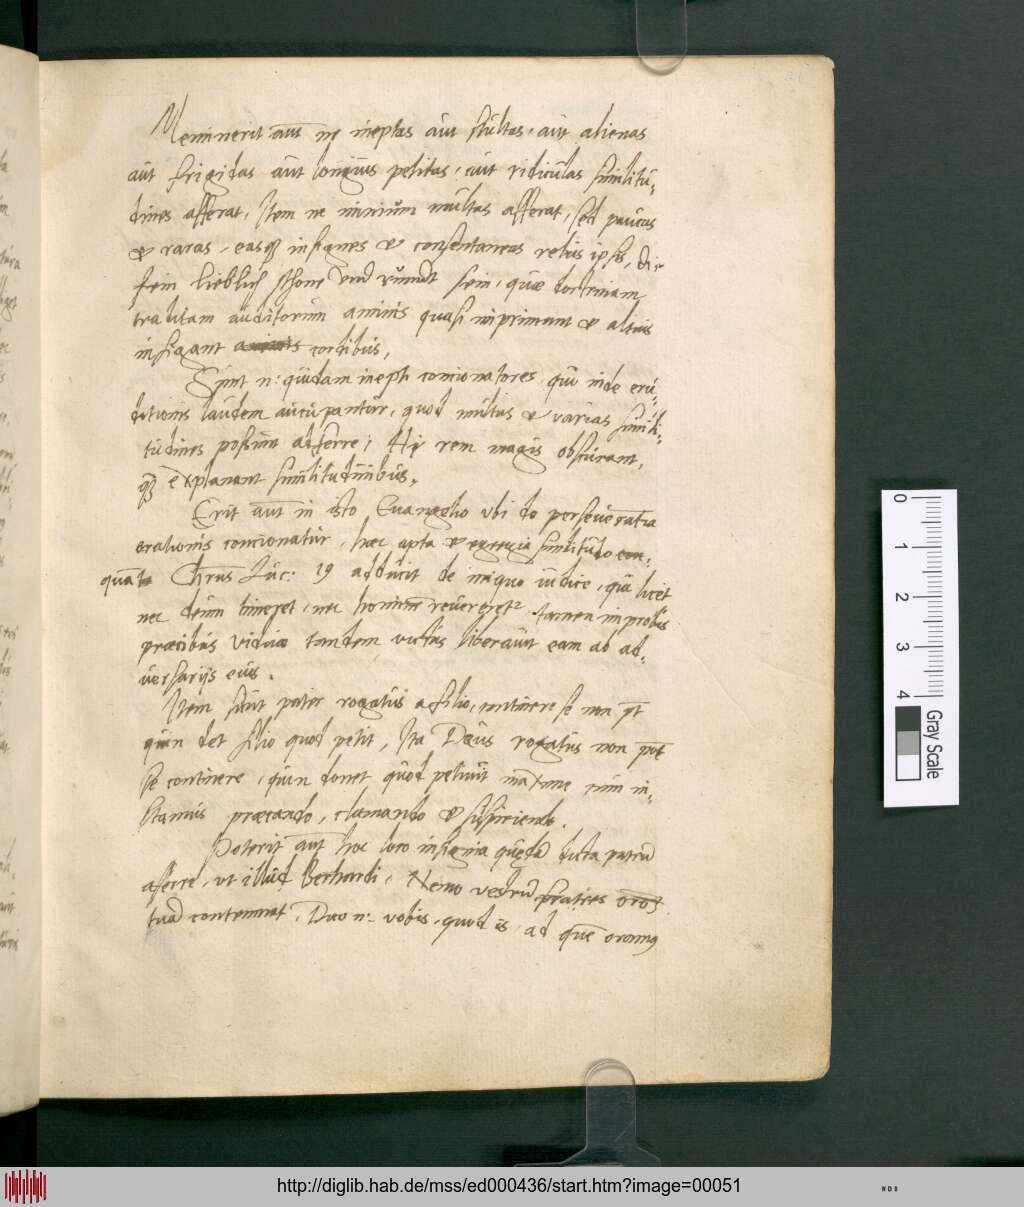 Meminerit aut̄ ne ineptas aut stultas, aut alienas
aut frigidas aut longius petitas, aut ridiculas similitu-
dines afferat, Item ne nimium multas afferat, sed paucas
& raras, easq3 insignes & consentaneas rebus ipsis, di-
fein lieblich schone vnd rundt sein, quæ doctrinam
traditam auditorum animis quasi imprimant & altius
infigant cordibus,
Sunt n: quidam inepti concionatores qui inde eru-
ditionis laudem aucupantur, quod multas & varias simili-
tudines possunt adferre, Hi rem magis obscurant,
q3 explanant similitudinibus.
Erit aut̄ in isto Euangelio vbi de perseuerantia
orationis concionatur, hæc apta & egregia similitudo
quam Chrūs Luc: 19 adducit de iniquo iudice, qui licet
nec deum timeret, nec hominem reuereret, tamen improbis
præcibus viduæ tandem victus liberauit eam ab ad-
uersarijs eius.
Item sicut pater rogatus a filio, continere se non pt̄
quin det filio quod petit, Ita Deus rogatus non pōt
se continere, quin donet quod petiuit cum in-
stamus præcando, clamando & suspiriendo.
Poterit aut̄ hoc loco insignia quædā dicta patrū
afferre, vt illud Berhardi, Nemo vestrū fratres
suā contemnat, Dico n: vobis, quod is, ad quē oramus
21
0
1
2
3
4
Gray Scale
http://diglib.hab.de/mss/ed000436/start.htm?image=00051
WDB